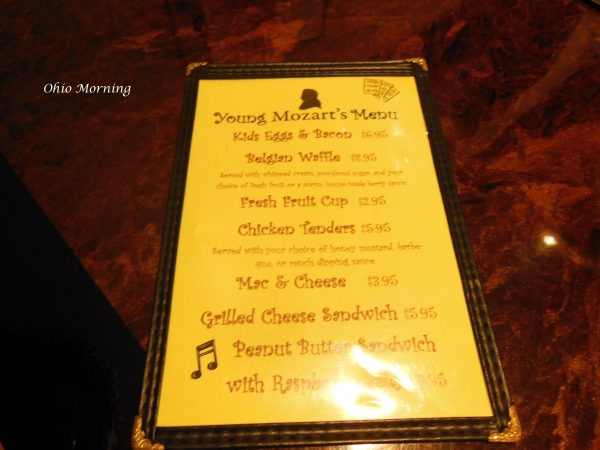 Ohio Morning
Young Mozart's Menu
Kids Eggs & Bacon $6.95
Belgian Waffle $8.95
Served with whipped cream, powdered sugar, and your
choice of fresh fruit or a warm, house-made berry sauce
Fresh Fruit Cup $2.95
Chicken Tenders $5.95
Served with your choice of honey mustard, barbe-
que, or ranch dipping sauce.
Mac & Cheese $3.95
Grilled Cheese Sandwich $5.95
Peanut Butter Sandwich
with